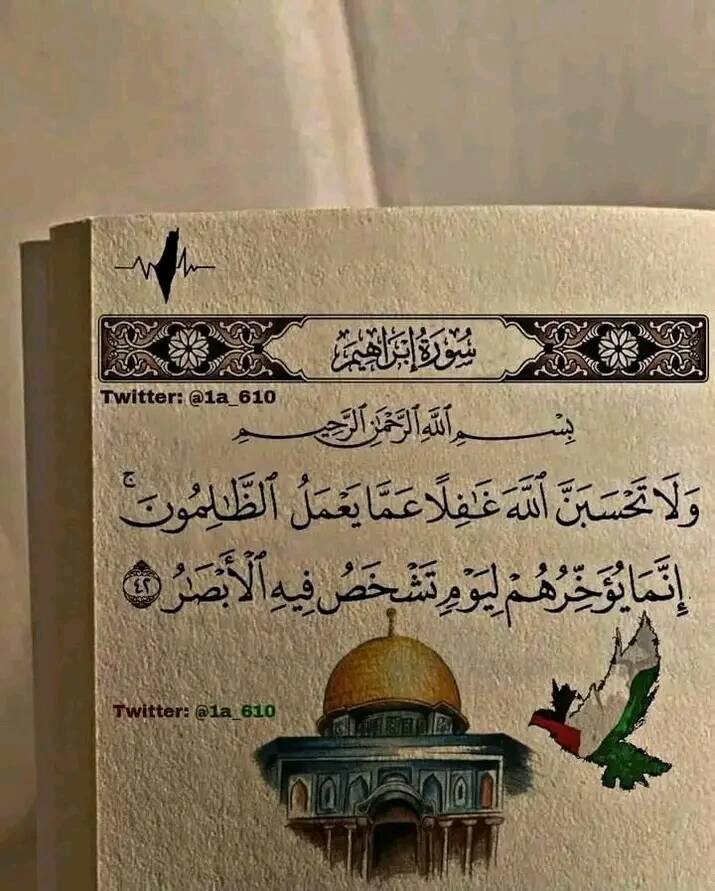 سُورَةُ إِبْرَاهِيمَ
Twitter: @1a_610
بِسْمِ ٱللَّهِ ٱلرَّحْمَٰنِ ٱلرَّحِيمِ
وَلَا تَحْسَبَنَّ ٱللَّهَ غَٰفِلًا عَمَّا يَعْمَلُ ٱلظَّٰلِمُونَ ۚ
إِنَّمَا يُؤَخِّرُهُمْ لِيَوْمٍ تَشْخَصُ فِيهِ ٱلْأَبْصَٰرُ ٤٢
Twitter: @1a_610